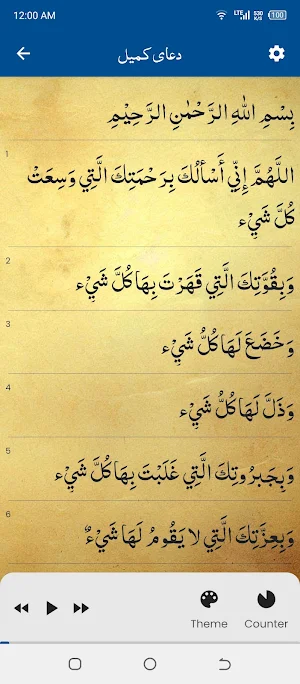 12:00 AM LTE 530 K/S 100
دعای کمیل
بِسْمِ اللهِ الرَّحْمٰنِ الرَّحِيْمِ
1
اللَّهُمَّ إِنِّي أَسْأَلُكَ بِرَحْمَتِكَ الَّتِي وَسِعَتْ
كُلَّ شَيْء
2
وَبِقُوَّتِكَ الَّتِي قَهَرْتَ بِهَا كُلَّ شَيْء
3
وَخَضَعَ لَهَا كُلُّ شَيْء
4
وَذَلَّ لَهَا كُلُّ شَيْء
5
وَبِجَبَرُوتِكَ الَّتِي غَلَبْتَ بِهَا كُلَّ شَيْء
6
وَبِعِزَّتِكَ الَّتِي لا يَقُومُ لَهَا شَيْءٌ
Theme Counter